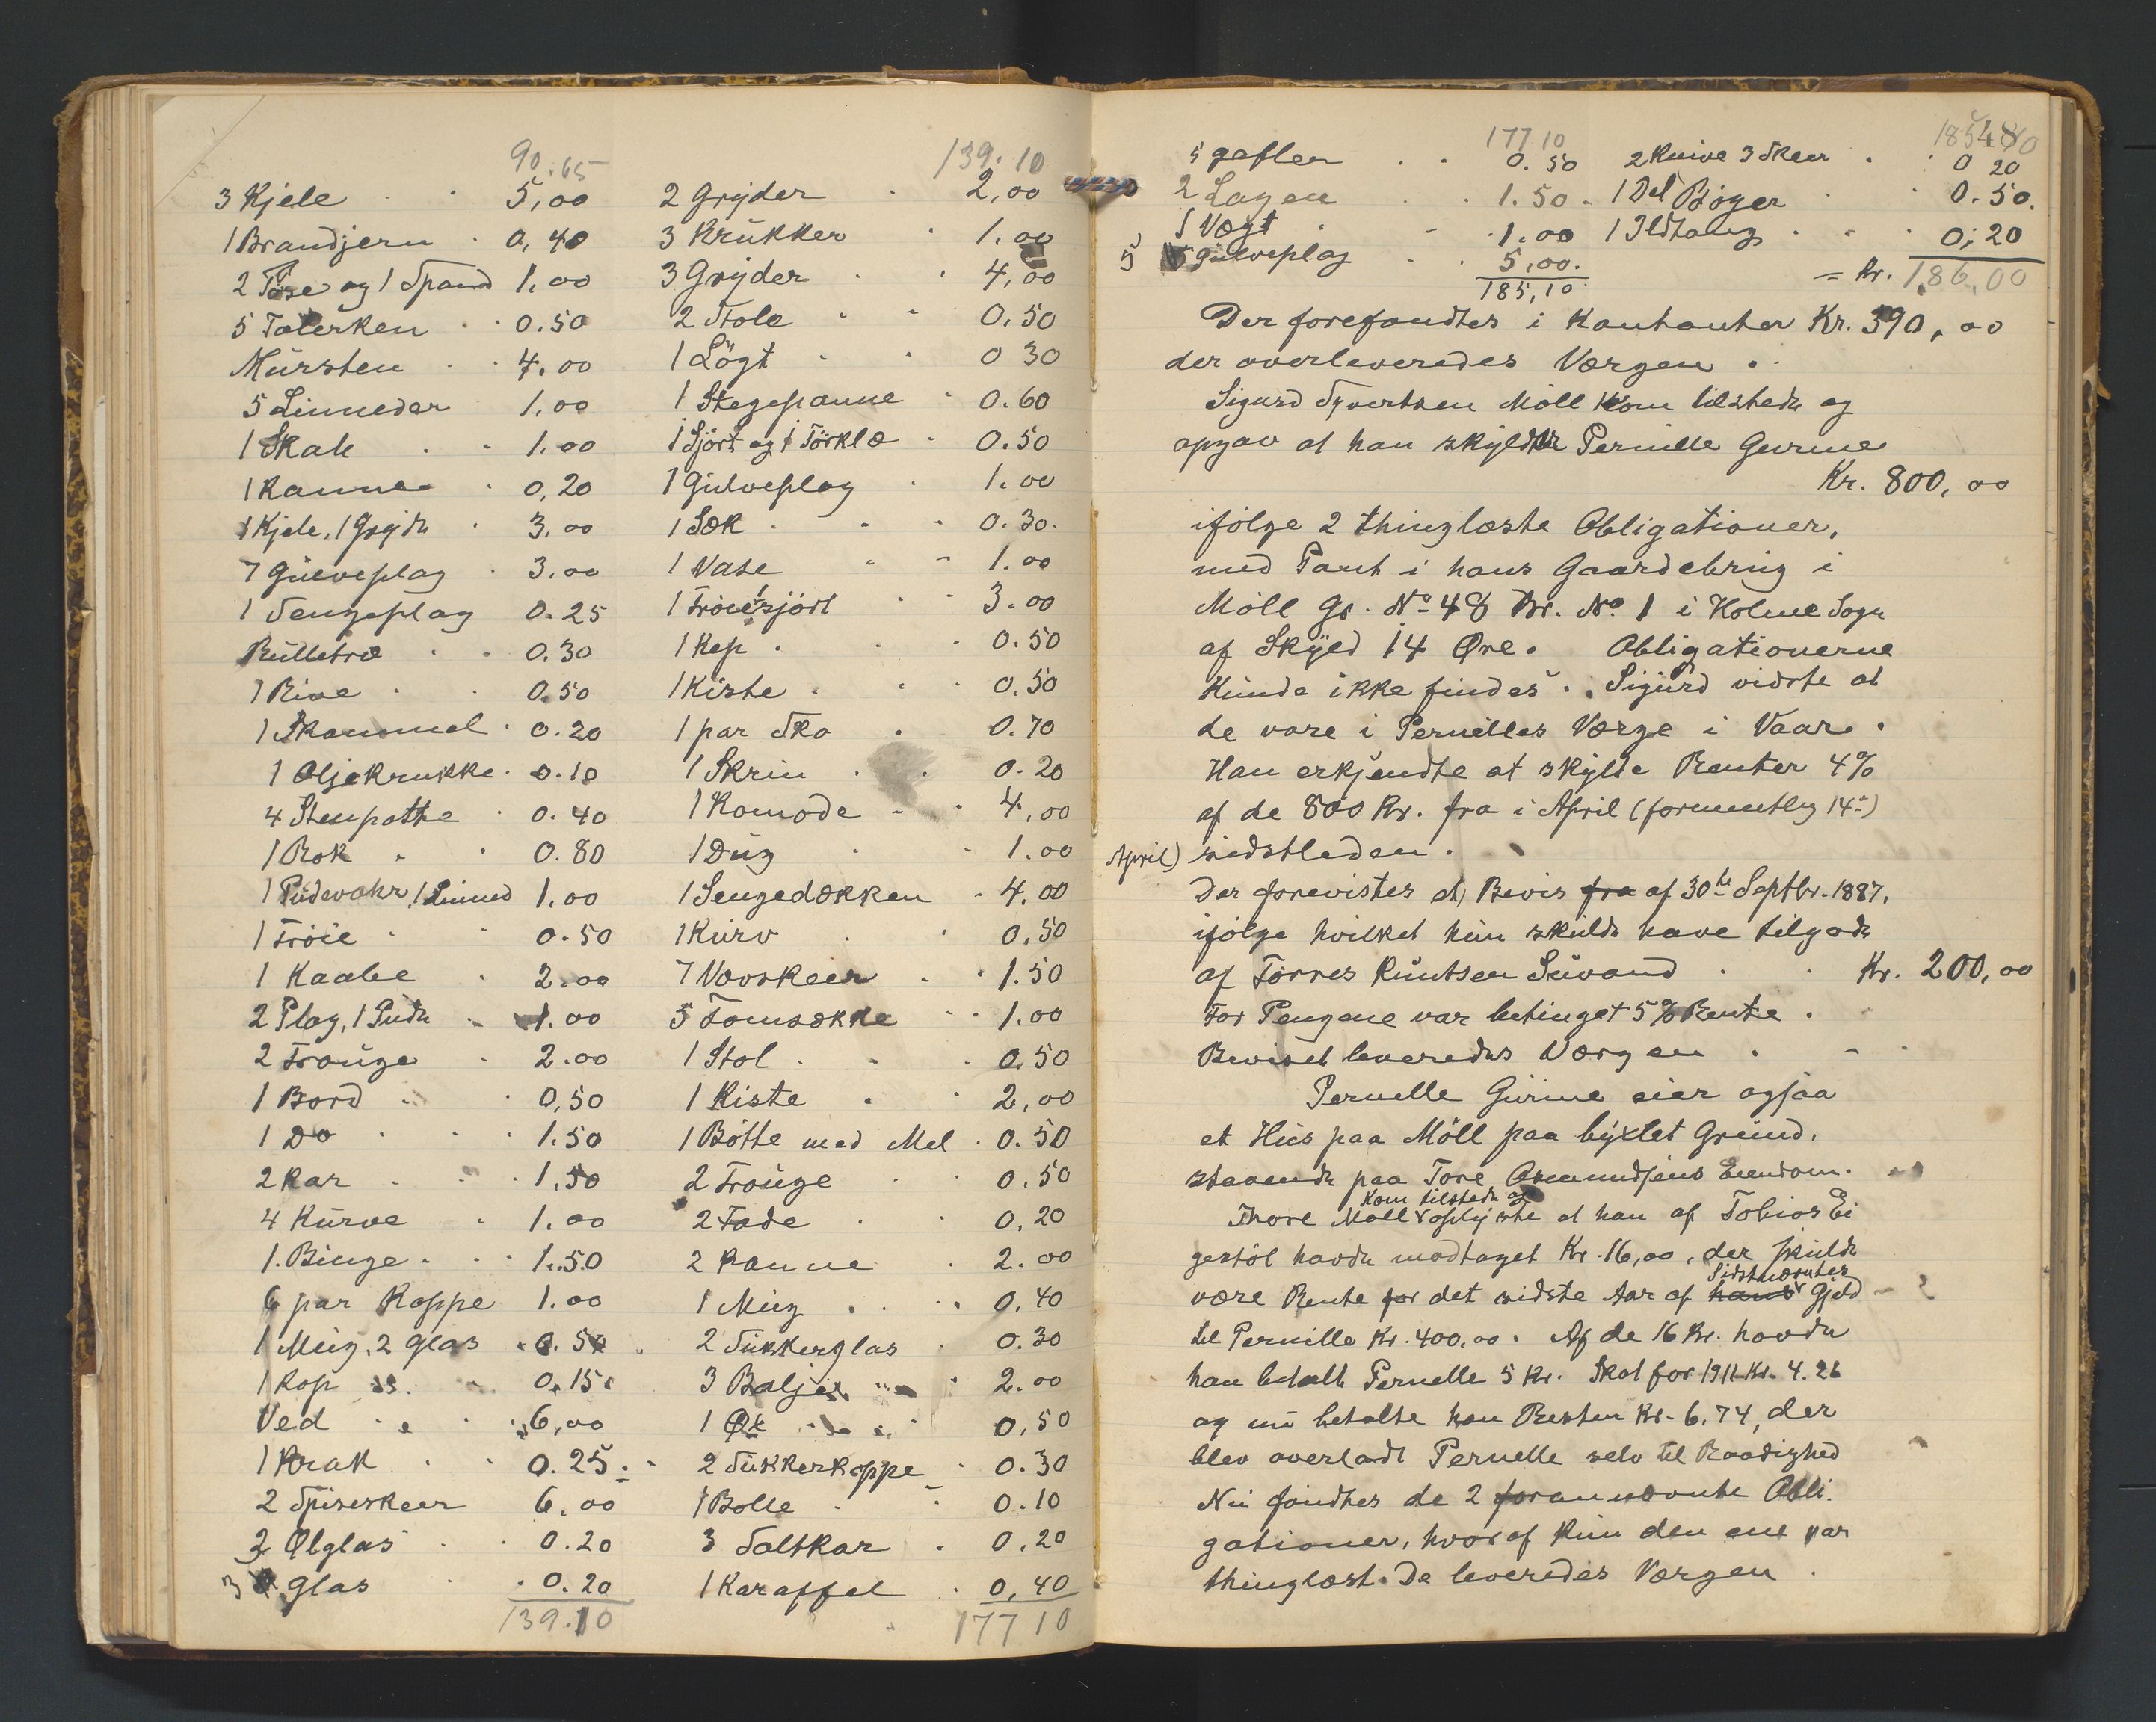 90.65
3 Kjele 5,00
1 Brandjern 0,40
2 og 1 Spand 1,00
5 Talerken 0.50
Mursten 4.00
5 Linneder 1,00
1 Skab 1.00
1 Kanne 0,20
1 Kjele, 1 Gryde 3.00
7 Gulveplag 3.00
1 Sengeplag 0.25
Rulletræ 0.30
1 Rive 0.50
1 Skammel 0.20
1 Oljekrukke 0.10
4 Stenpotte 0.40
1 Rok 0.80
1 Pudevahr, 1 Linned 1,00
1 Trøie 0.50
1 Kaabe 2.00
2 Plag, 1 Pude 1.00
2 Trouge 2.00
1 Bord 0,50
1 Do 1.50
2 Kar 1,50
4 Kurve 1.00
1. Binge 1.50
6 par Koppe 1.00
1 Mug, 2 glas 0.50
1 Kop 0.15
Ved 6,00
1 Krak 0.25
2 Spiseskeer 6,00
2 Ølglas 0.20
3 Glas 0.20
139.10
139.10
2 Gryder 2,00
3 Krukker 1.00
3 Gryder 4,00
2 Stole 0.50
1 Løgt 0 30
1 Stegepanne 0.60
1 Sjört og 1 Törklæ 0.50
1 Gulveplag 1.00
1 Sæk 0.30.
1 Vase 1.00
1 Trøiesjört 3.00
1 Kep 0.50
1 Kiste 0.50
1 par Sko 0.70
1 Skrin 0.20
1 Komode 4,00
1 Dug 1.00
1 Sengedækken 4.00
1 Kurv 0.50
7 Vævskeer 1.50
5 Tomsække 1.00
1 Stol 0.50
1 Kiste 2,00
1 Bøtte med Mel 0.50
2 Trouge 0.50
2 Fade 0,20
2 Kanne 2.00
1 Mug 0,40
2 Sukkerglas 0.30
3 Baljer 2.00
1 Øx 0,50
2 Sukkerkoppe 0.30
1 Bolle 0.10
3 Saltkar 0,20
1 Karaffel 0,40
177 10
177 10
5 gafler 0.50
2 Lagen 1.50
1 Vægt 1.00
5 Gulveplag 5,00.
185,10
2 Knive 3 Skeer 0 20
1 Del Bøger 0.50.
1 Ildtang 0,20
= Kr. 186,00
Der forefandtes i Kontanter Kr. 390,00
der overleveredes Værgen.
Sigurd Syvertsen Møll kom tilstede og
opgav at han skyldte Pernille Gurine
Kr. 800,00
ifølge 2 thinglæste Obligationer,
med Pant i hans Gaardebrug i
Møll Gr. No 48 Br. No 1 i Holme Sogn
af Skyld 14 Øre. Obligationerne
kunde ikke findes. Sigurd vidste at
de vare i Pernilles Værge i Vaar.
Han erkjendte at skylde Renter 4%
af de 800 Kr. fra i April (formentlig 14de
April) sidstleden.
Der forevistes et Bevis fra af 30te Septbr. 1887,
ifølge hvilket hun skulde have tilgode
af Tørres Knutsen Kr. 200,00
For Pengene var betinget 5% Rente.
Beviset leveredes Værgen.
Pernelle Gurine eier ogsaa
et Hus paa Møll paa byxlet Grund,
staaende paa Tore Eiendom.
Thore Møll kom tilstede og oplyste at han af Tobias Ei
gestøl havde modtaget Kr. 16,00, der skulde
være Rente for det sidste Aar af hans Sidstnævntes Gjeld
til Pernille Kr. 400.00. Af de 16 Kr. havde
han betalt Pernelle 5 Kr. Skat for 1911 Kr. 4.26
og nu betalte han Resten Kr. 6,74, der
blev overladt Pernelle selv til Raadighed
Nu fandtes de 2 forannævnte Obli.
gationer, hvoraf kun den ene var
thinglæst. De leveredes Værgen.